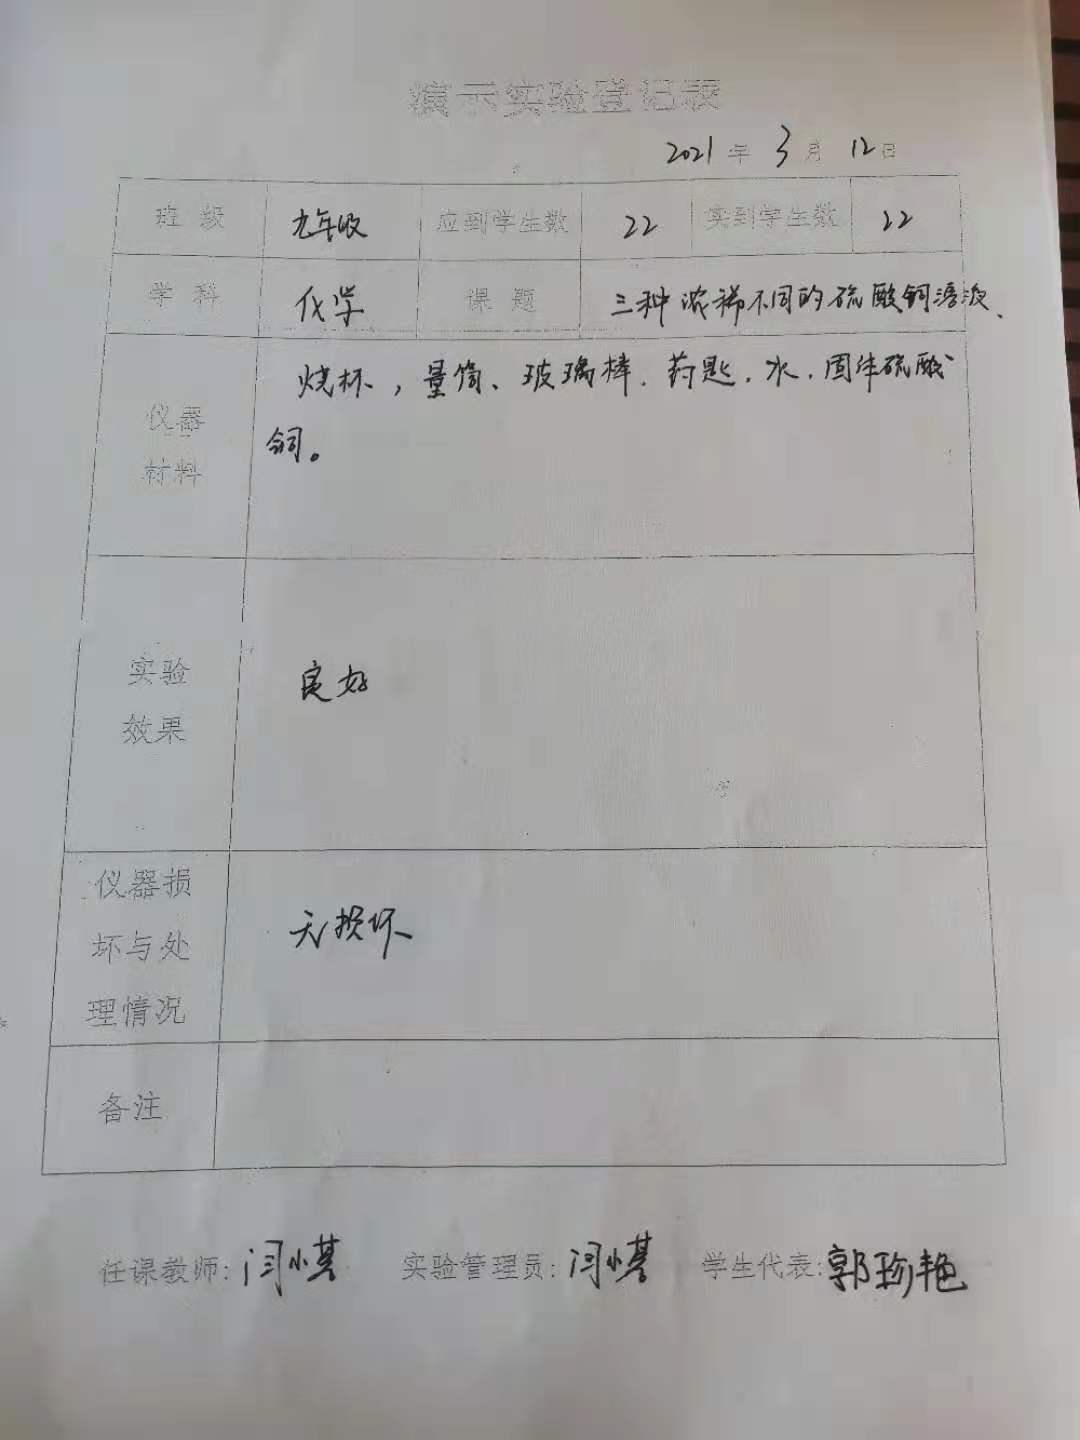 演示实验登记表
2021年3月12日
班级 九年级 应到学生数 22 实到学生数 22
学科 化学 课题 三种浓稀不同的硫酸铜溶液、
仪器材料 烧杯，量筒、玻璃棒、药匙、水、固体硫酸
铜。
实验
效果 良好
仪器损
坏与处 无损坏
理情况
备注
任课教师: 闫小基 实验管理员: 闫小基 学生代表: 郭珍艳